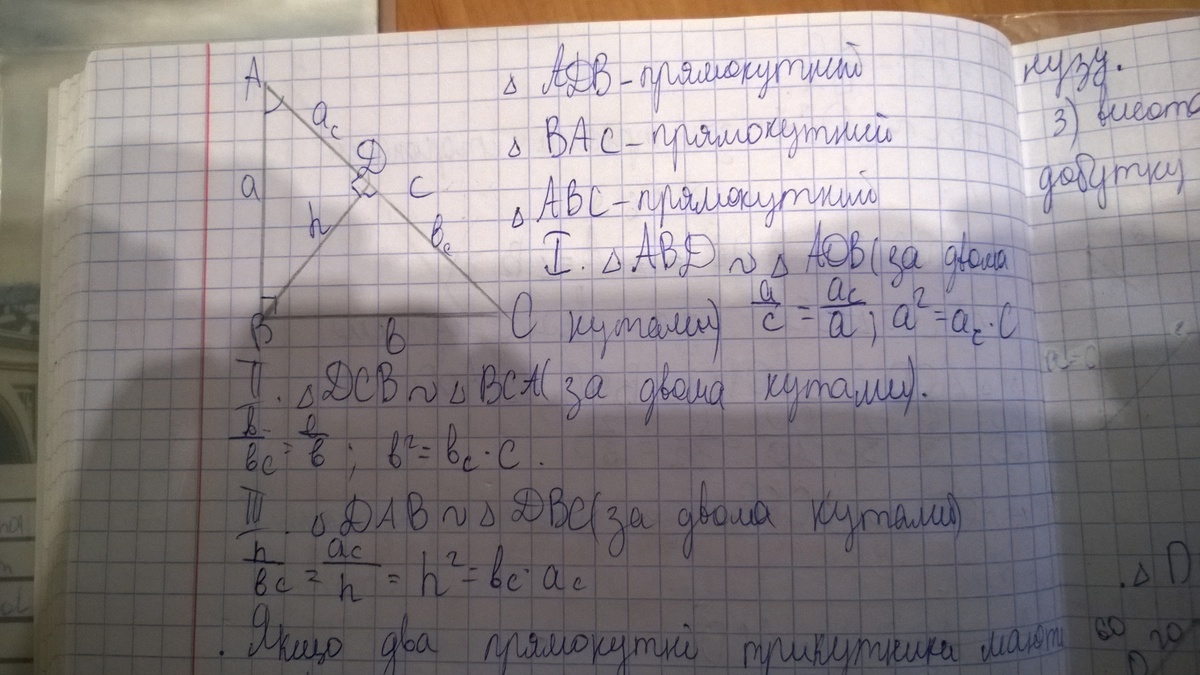 A
a_c
D
a
c
h
в_c
B
C
в
△ ADB - прямокутний
△ BAC - прямокутний
△ ABC - прямокутний
I. △ ABD ~ △ ADB (за двома
кутами) a/c = a_c/a; a² = a_c · C
II. △ DCB ~ △ BCA (за двома кутами).
в/в_c = c/в; в² = в_c · C.
III. △ DAB ~ △ DBC (за двома кутами)
h/в_c = a_c/h = h² = в_c · a_c
. Якщо два прямокутні трикутника мають
нузу.
3) висота
добутку
. △ D
60 20